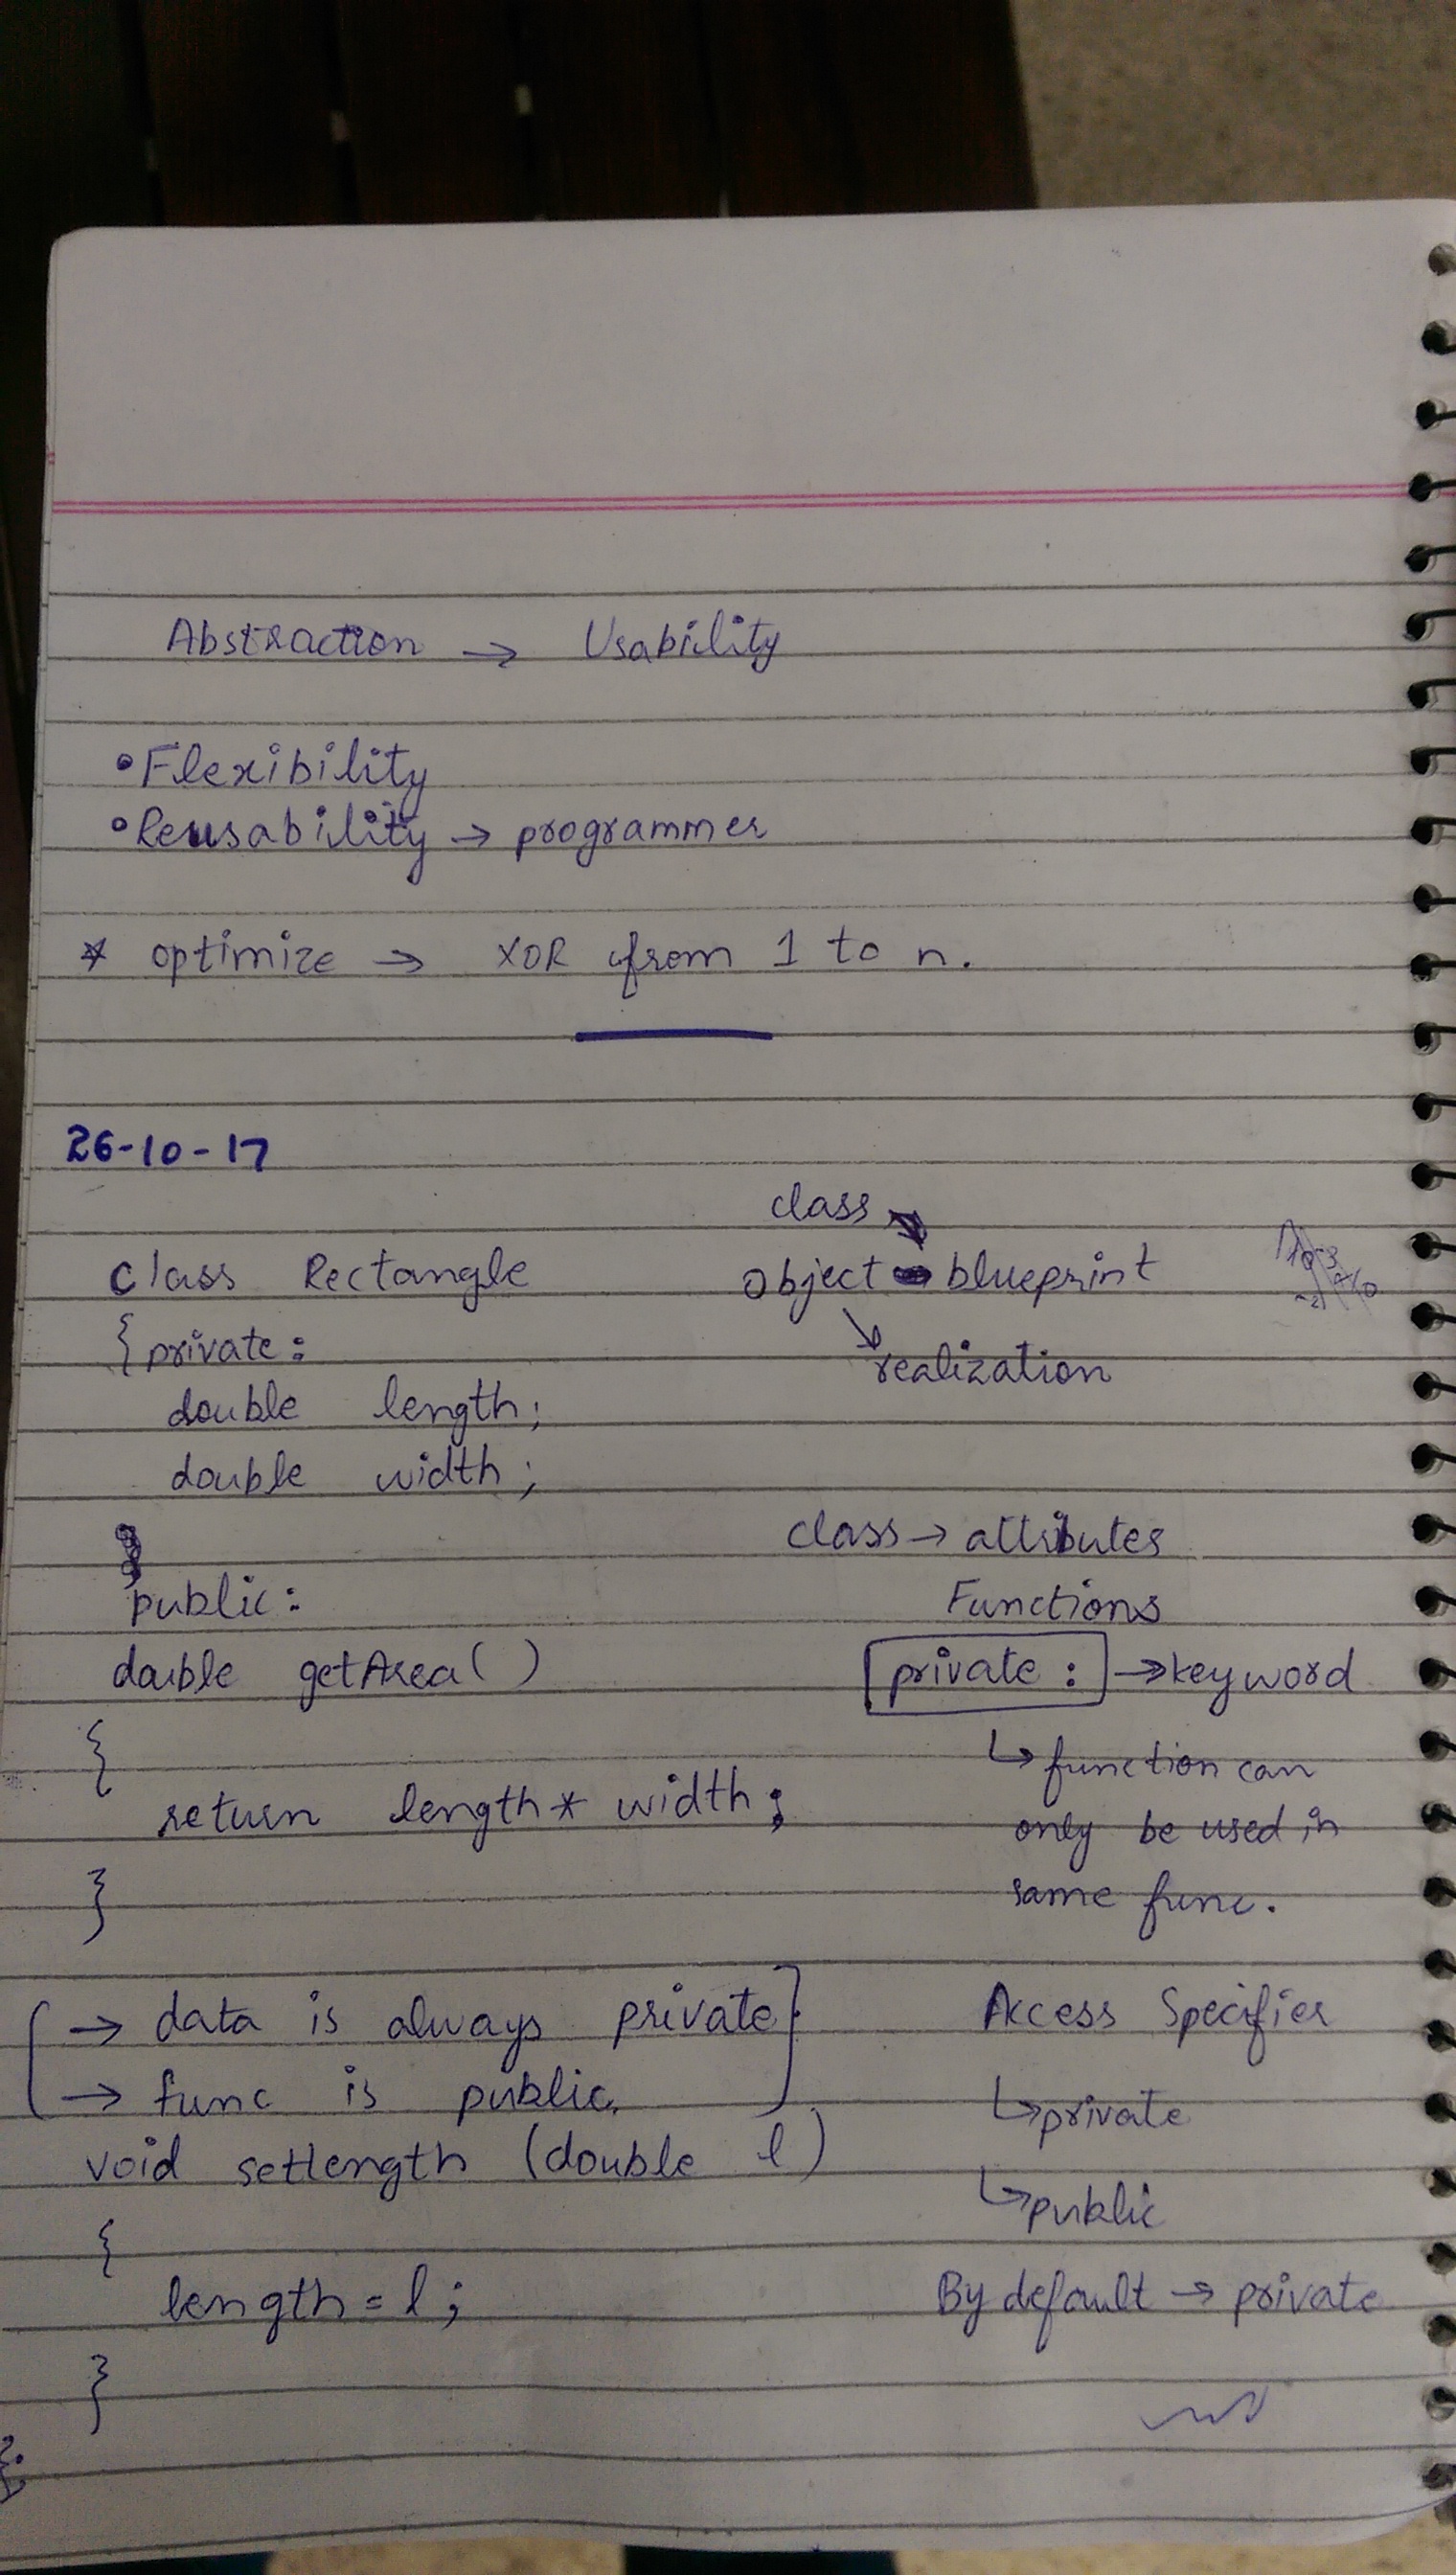 Abstraction → Usability
• Flexibility
• Reusability → programmer
* optimize → XOR from 1 to n.
26-10-17
class Rectangle
{ private:
double length;
double width;
public:
double getArea()
{
return length * width;
}
[→ data is always private].
→ func is public.
void setlength (double l)
{
length = l;
}
};
class ↘
object blueprint
↘ realization
class → attributes
Functions
private : → keyword
↳ function can
only be used in
same func.
Access Specifier
↳ private
↳ public
By default → private